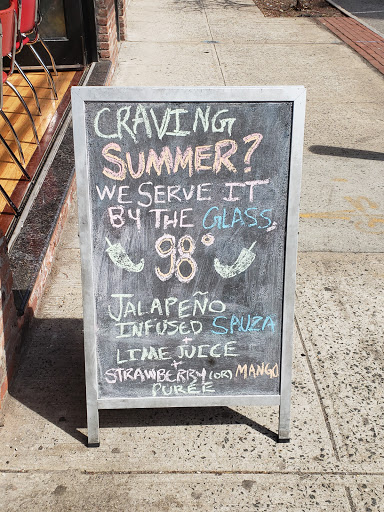 CRAVING
SUMMER?
WE SERVE IT
BY THE GLASS,
98°
JALAPEÑO
INFUSED SAUZA
+
LIME JUICE
+
STRAWBERRY (OR) MANGO
PUREÉ